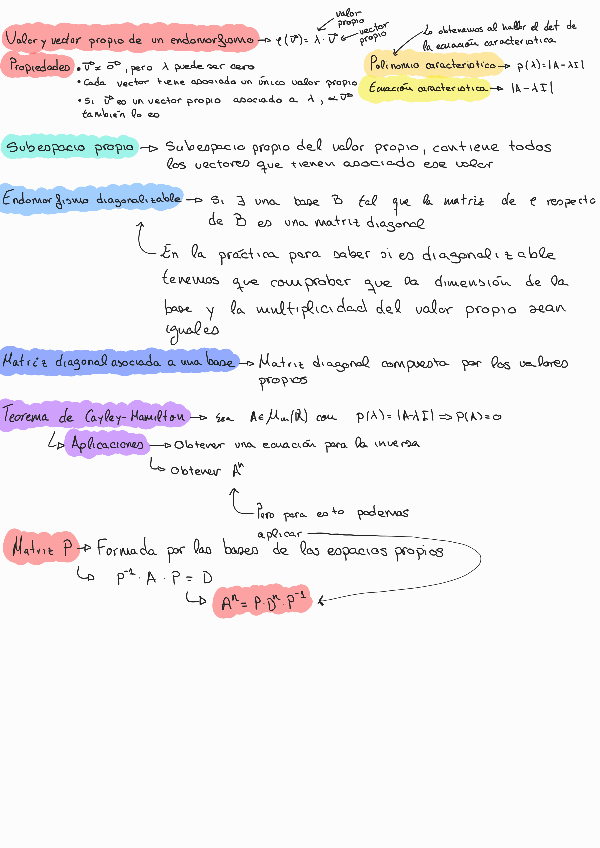 Valor y vector propio de un endomorfismo → φ(v⃗) = λ · v⃗
valor propio
vector propio
Lo obtenemos al hallar el det de
la ecuación característica
Propiedades
• v⃗ ≠ 0⃗, pero λ puede ser cero
• Cada vector tiene asociado un único valor propio
• Si v⃗ es un vector propio asociado a λ, αv⃗
también lo es
Polinomio característico → p(λ) = |A-λI|
Ecuación característica → |A-λI|
Subespacio propio → Subespacio propio del valor propio, contiene todos
los vectores que tienen asociado ese valor
Endomorfismo diagonalizable → Si ∃ una base B tal que la matriz de φ respecto
de B es una matriz diagonal
En la práctica para saber si es diagonalizable
tenemos que comprobar que la dimensión de la
base y la multiplicidad del valor propio sean
iguales
Matriz diagonal asociada a una base → Matriz diagonal compuesta por los valores
propios
Teorema de Cayley-Hamilton → sea A∈Mm(ℝ) con p(λ) = |A-λI| ⇒ P(A)=0
Aplicaciones → Obtener una ecuación para la inversa
Obtener Aⁿ
Pero para esto podemos
aplicar
Matriz P → Formada por las bases de los espacios propios
P⁻¹ · A · P = D
Aⁿ = P·Dⁿ·P⁻¹